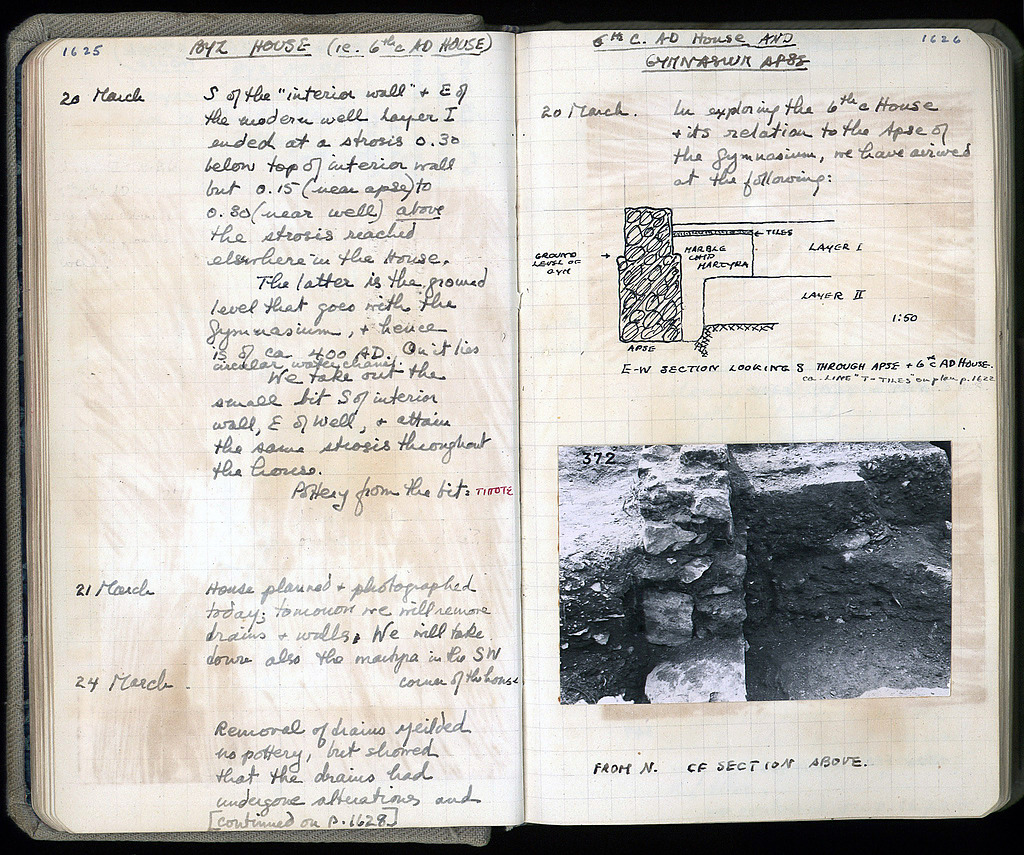 1625
BYZ HOUSE (ie. 6th c AD HOUSE)
20 March
S of the "interior wall" + E of
the modern well Layer I
ended at a strosis 0.30
below top of interior wall
but 0.15 (near apse) to
0.30 (near well) above
the strosis reached
elsewhere in the House.
The latter is the ground
level that goes with the
Gymnasium, + hence
is of ca 400 AD. On it lies
circular water channel.
We take out the
small bit S of interior
wall, E of Well, + attain
the same strosis throughout
the house.
Pottery from the bit: ΤΙΠΟΤΕ
21 March
House planned + photographed
today; tomorrow we will remove
drains + walls. We will take
down also the martyra in the SW
corner of the house
24 March
Removal of drains yeilded
no pottery, but showed
that the drains had
undergone alterations and
[continued on p. 1628]
1626
6th C. AD House AND
GYMNASIUM APSE
20 March.
In exploring the 6th c House
+ its relation to the Apse of
the Gymnasium, we have arrived
at the following:
GROUND
LEVEL OF
GYM
TILES
MARBLE
CHIP
MARTYRA
LAYER I
LAYER II
1:50
APSE
E-W SECTION LOOKING S THROUGH APSE + 6th C AD HOUSE.
ca. LINE "T-TILES" on plan p. 1622
372
FROM N. CF SECTION ABOVE.